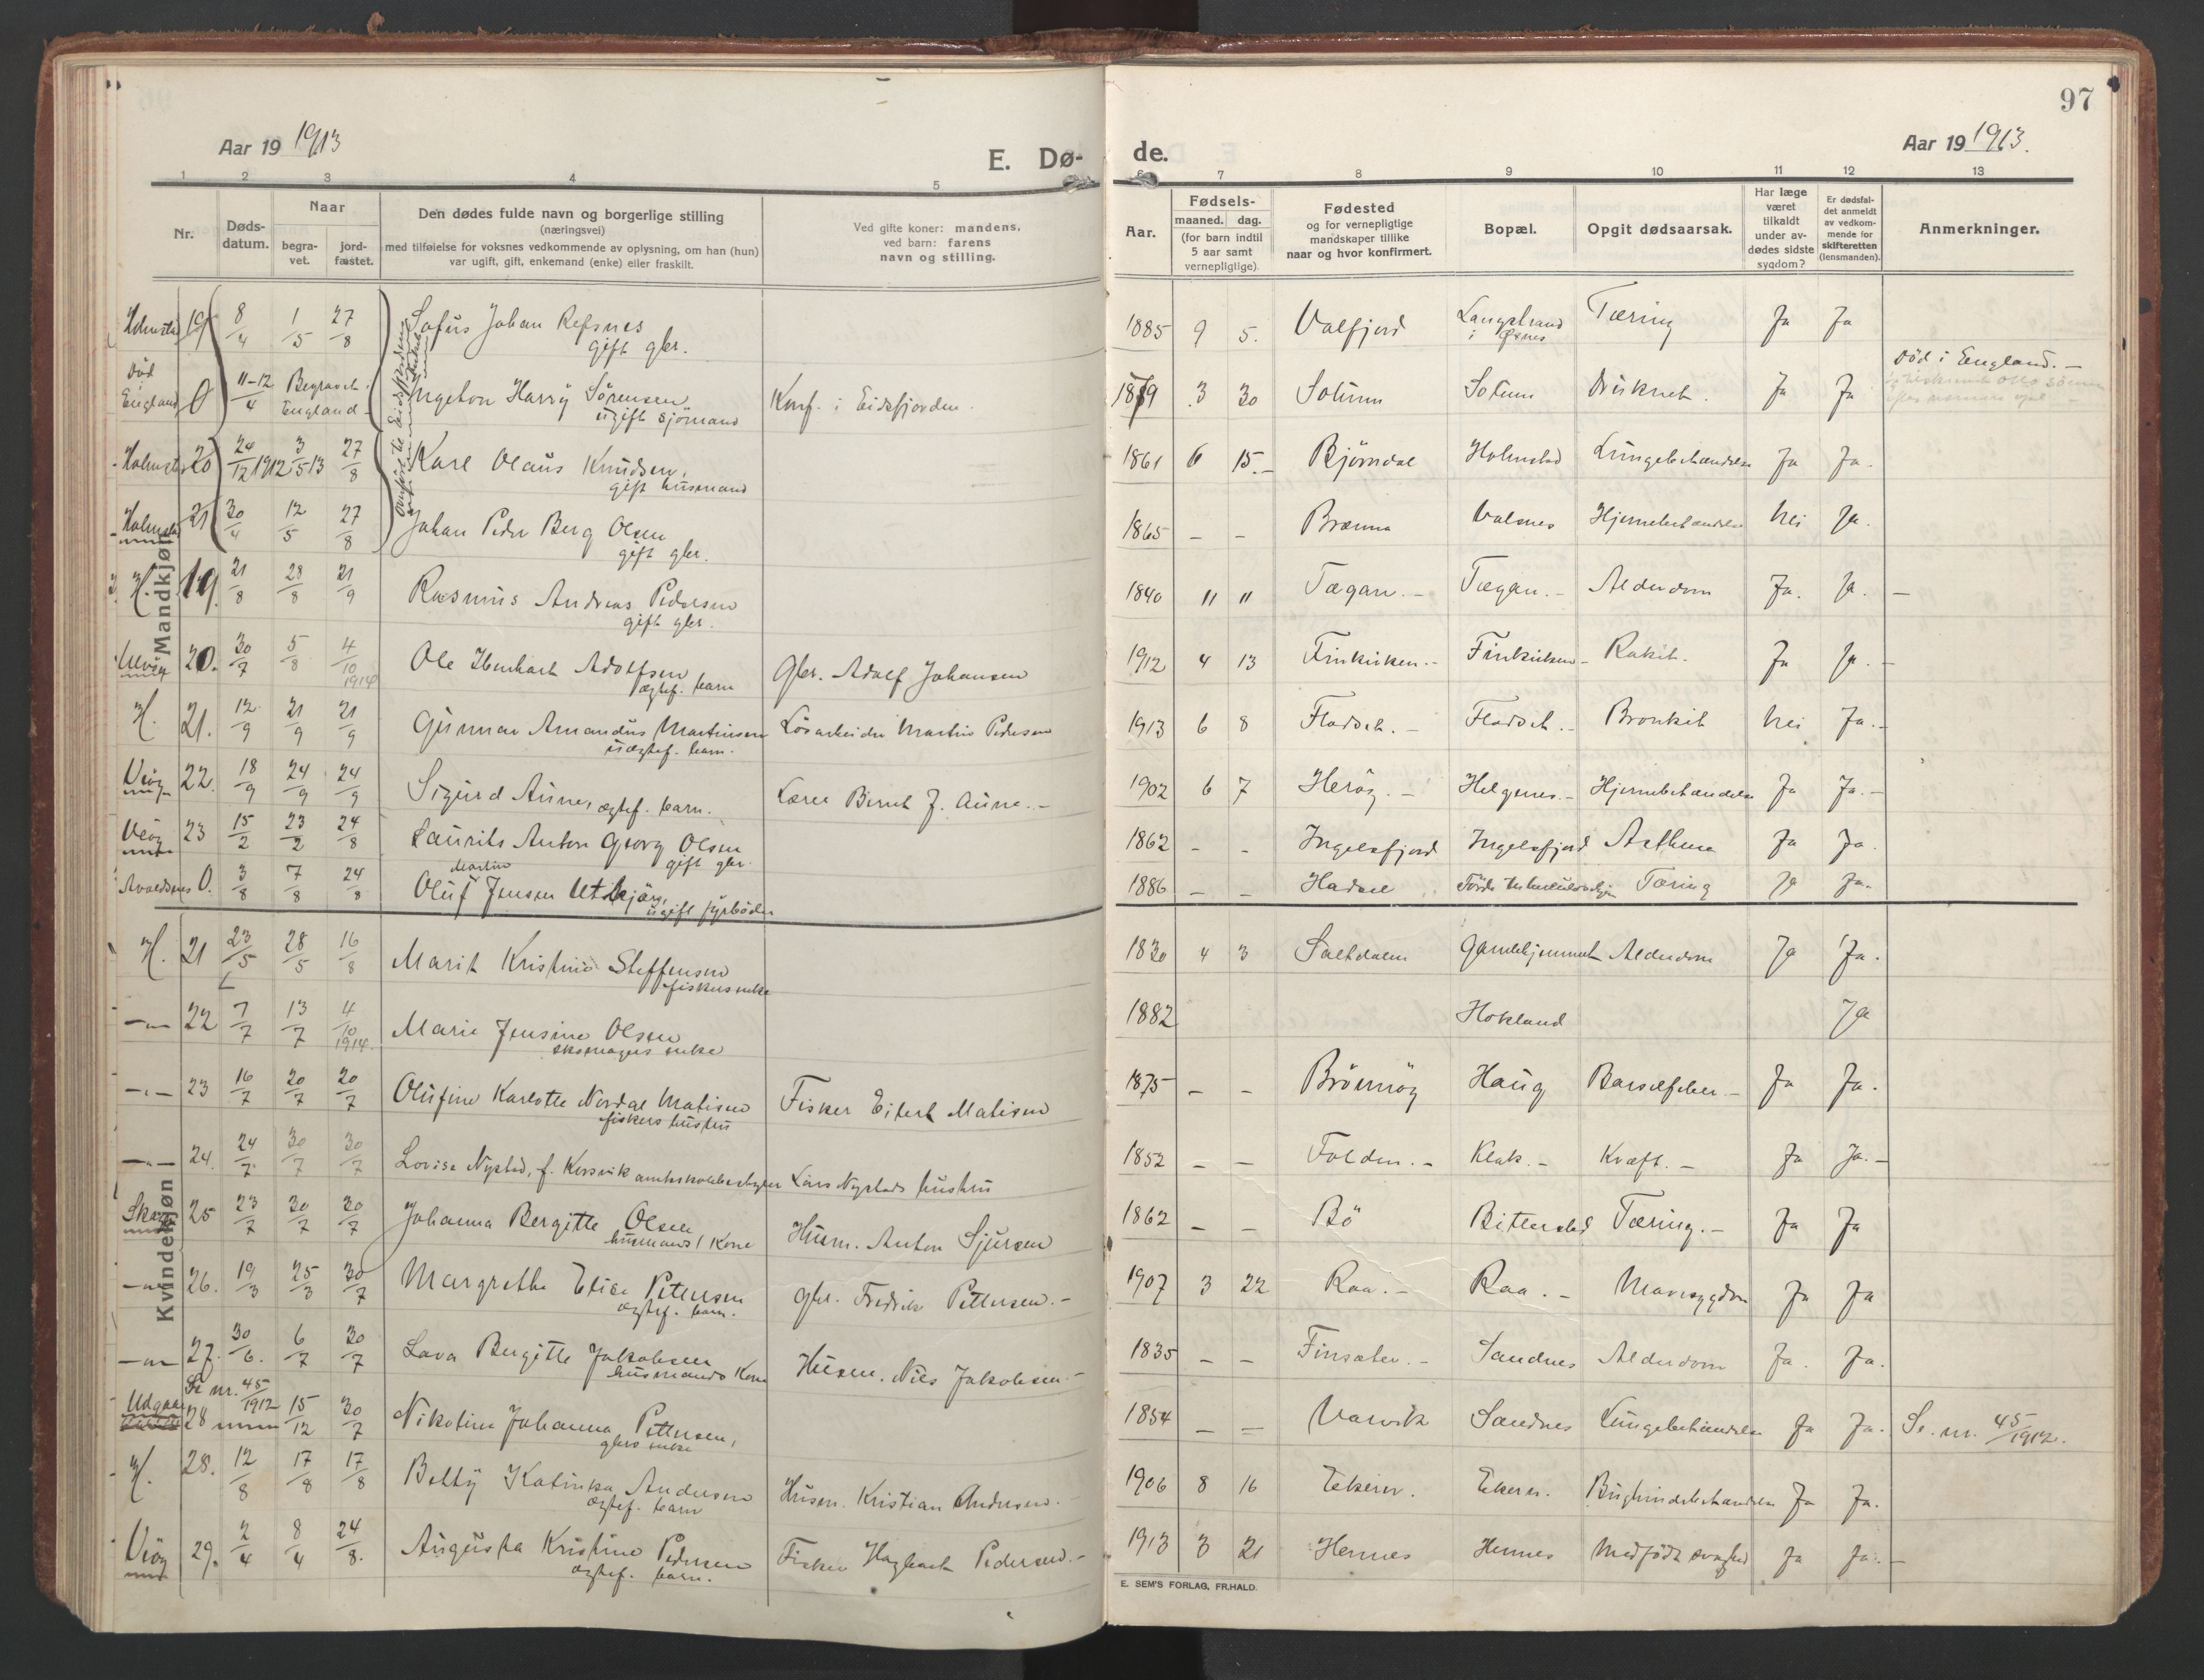 97
Aar 19 1913
E. Dø-
de.
Aar 19 1913.
1 2 3 4 5 6 7 8 9 10 11 12 13
Nr.
Døds-
datum.
Naar
begra-
vet.
jord-
fæstet.
Den dødes fulde navn og borgerlige stilling
(næringsvei)
med tilføielse for voksnes vedkommende av oplysning, om han (hun)
var ugift, gift, enkemand (enke) eller fraskilt.
Ved gifte koner: mandens,
ved barn: farens
navn og stilling.
Aar.
Fødsels-
maaned. dag.
(for barn indtil
5 aar samt
vernepligtige).
Fødested
og for vernepligtige
mandskaper tillike
naar og hvor konfirmert.
Bopæl.
Opgit dødsaarsak.
Har læge
været
tilkaldt
under av-
dødes sidste
sygdom?
Er dødsfal-
det anmeldt
av vedkom-
mende for
skifteretten
(lensmanden).
Anmerkninger.
Mandkjøn
19 8/4 1/5 27/8 Sofus Johan Refsnes 1885 9 5. Valfjord Langstrand Tæring Ja Ja
gift gbr. i Øsnes
Død i England 0 11-12/4 Begravet England Ingeton Harry Sørensen Konf. i Eidsfjorden. 1879 3 30 Solum Solum Druknet. Ja Ja Død i England.-
ugift sjømand
20 24/12 1912 3/5 13 27/8 Karl Olaus Knudsen, 1861 6 15.- Bjørndal Holmstad Lungebetændelse Ja Ja.
gift husmand
21 30/4 12/5 27/8 Johan Peder Berg Olsen 1865 - - Brænna Valsnes Hjernebetændelse Nei Ja.
gift gbr.
H. 19. 21/8 28/8 21/9 Rasmus Andreas Pedersen 1840 " " Tægan.- Tægan.- Alderdom Ja. Ja. -
gift gbr.
20. 30/7 5/8 4/10 1914 Ole Edvhart Adolfsen Gbr. Adolf Johansen 1912 4 13 Finkirken.- Finkirken- Rakit. Ja Ja.-
ægtef. barn
H. 21. 12/9 21/9 21/9 Gunnar Amandus Martinsen Løsarbeider Martin Pedersen 1913 6 8 Fladset.- Fladset.- Bronkit Nei Ja.-
uægtef. barn.
22. 18/9 24/9 24/9 Sigurd Aune, ægtef. barn. Lærer Bernt J. Aune.- 1902 6 7 Herøy.- Helgenes.- Hjernebetændelse Ja Ja.-
23 15/2 23/2 24/8 Laurits Anton Georg Olsen 1862 - - Ingelsfjord Ingelsfjord Asthma Ja Ja.
gift gbr.
Avaldsnes 0. 3/8 7/8 24/8 Oluf Martin Jensen Utbjørg, 1886 - - Hadsel Tæring Ja Ja.
ugift fyrbøder
Kvindekjøn
H. 21 23/5 28/5 16/8 Marit Kristine Steffensen 1830 4 3 Saltdalen Gamlehjemmet Alderdom Ja Ja.
fiskers enke
22 7/7 13/7 4/10 1914. Marie Jensine Olsen 1882 Hokland Ja
skomagers enke
23 16/7 20/7 20/7 Olufine Karlotte Nordal Matisen Fisker Eilert Matisen 1875 - - Brönnöy Haug Barselfeber.- Ja Ja.
fiskers hustru
24. 24/7. 30/7 30/7 Lovise Nystad, f. Korsvik amtsskolebestyrer Lars Nystads hustru 1852 - - Folden.- Klak.- Kræft.- Ja Ja.-
25 23/7 30/7 30/7 Johanna Bergitte Olsen Husm. Anton Sjursen 1862 - - Bö Bitterstad Tæring.- Ja Ja
husmands kone
26. 19/3 25/3 30/7 Margrethe Elise Pettersen Gbr. Fredrik Pettersen.- 1907 3 22 Raa.- Raa.- Mavesygdom Ja Ja
ægtef. barn.
27. 30/6. 6/7 30/7 Lava Bergitte Jakobsen Husm. Nils Jakobsen.- 1835 - - Finsæter.- Sandnes Alderdom Ja. Ja.
husmands kone
Se nr. 45/1912
Udgaar 28 15/12 30/7 Nikoline Johanna Pettersen, 1854 - - Varvik Sandnes Lungebetændelse Ja Ja. Se. nr. 45/1912.
gbrs enke
H. 28. 12/8 17/8 17/8 Betty Katinka Andersen Husm. Kristian Andersen.- 1906 8 16 Ekeren. Ekeren. Bughindebetændelse Ja Ja.
ægtef. barn
29. 2/4 8/4 24/8. Augusta Kristine Pedersen Fisker Hagbart Pedersen.- 1913 3 21 Hennes Hennes Medfødt svaghed Ja Ja.-
ægtef. barn.
E. SEM'S FORLAG, FR.HALD.